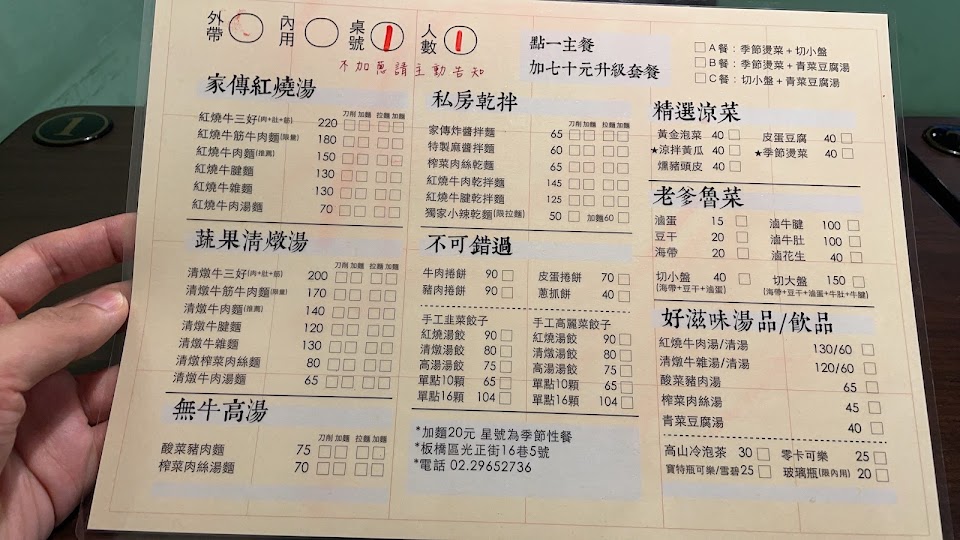 外帶 內用 桌號 1 人數 1
不加蔥請主動告知
點一主餐
加七十元升級套餐
A餐：季節燙菜+切小盤
B餐：季節燙菜+青菜豆腐湯
C餐：切小盤+青菜豆腐湯
家傳紅燒湯
刀削 加麵 拉麵 加麵
紅燒牛三好(肉+肚+筋) 220
紅燒牛筋牛肉麵(限量) 180
紅燒牛肉麵(推薦) 150
紅燒牛腱麵 130
紅燒牛雜麵 130
紅燒牛肉湯麵 70
蔬果清燉湯
刀削 加麵 拉麵 加麵
清燉牛三好(肉+肚+筋) 200
清燉牛筋牛肉麵(限量) 170
清燉牛肉麵(推薦) 140
清燉牛腱麵 120
清燉牛雜麵 130
清燉榨菜肉絲麵 80
清燉牛肉湯麵 65
無牛高湯
刀削 加麵 拉麵 加麵
酸菜豬肉麵 75
榨菜肉絲湯麵 70
私房乾拌
刀削 加麵 拉麵 加麵
家傳炸醬拌麵 65
特製麻醬拌麵 60
榨菜肉絲乾麵 65
紅燒牛肉乾拌麵 145
紅燒牛腱乾拌麵 125
獨家小辣乾麵(限拉麵) 50 加麵60
不可錯過
牛肉捲餅 90 皮蛋捲餅 70
豬肉捲餅 90 蔥抓餅 40
手工韭菜餃子 手工高麗菜餃子
紅燒湯餃 90 紅燒湯餃 90
清燉湯餃 80 清燉湯餃 80
高湯湯餃 75 高湯湯餃 75
單點10顆 65 單點10顆 65
單點16顆 104 單點16顆 104
*加麵20元 星號為季節性餐
*板橋區光正街16巷5號
*電話 02.29652736
精選涼菜
黃金泡菜 40 皮蛋豆腐 40
★涼拌黃瓜 40 ★季節燙菜 40
燻豬頭皮 40
老爹魯菜
滷蛋 15 滷牛腱 100
豆干 20 滷牛肚 100
海帶 20 滷花生 40
切小盤 40 切大盤 150
(海帶+豆干+滷蛋) (海帶+豆干+滷蛋+牛肚+牛腱)
好滋味湯品/飲品
紅燒牛肉湯/清湯 130/60
清燉牛雜湯/清湯 120/60
酸菜豬肉湯 65
榨菜肉絲湯 45
青菜豆腐湯 40
高山冷泡茶 30 零卡可樂 25
寶特瓶可樂/雪碧 25 玻璃瓶(限內用) 20
1